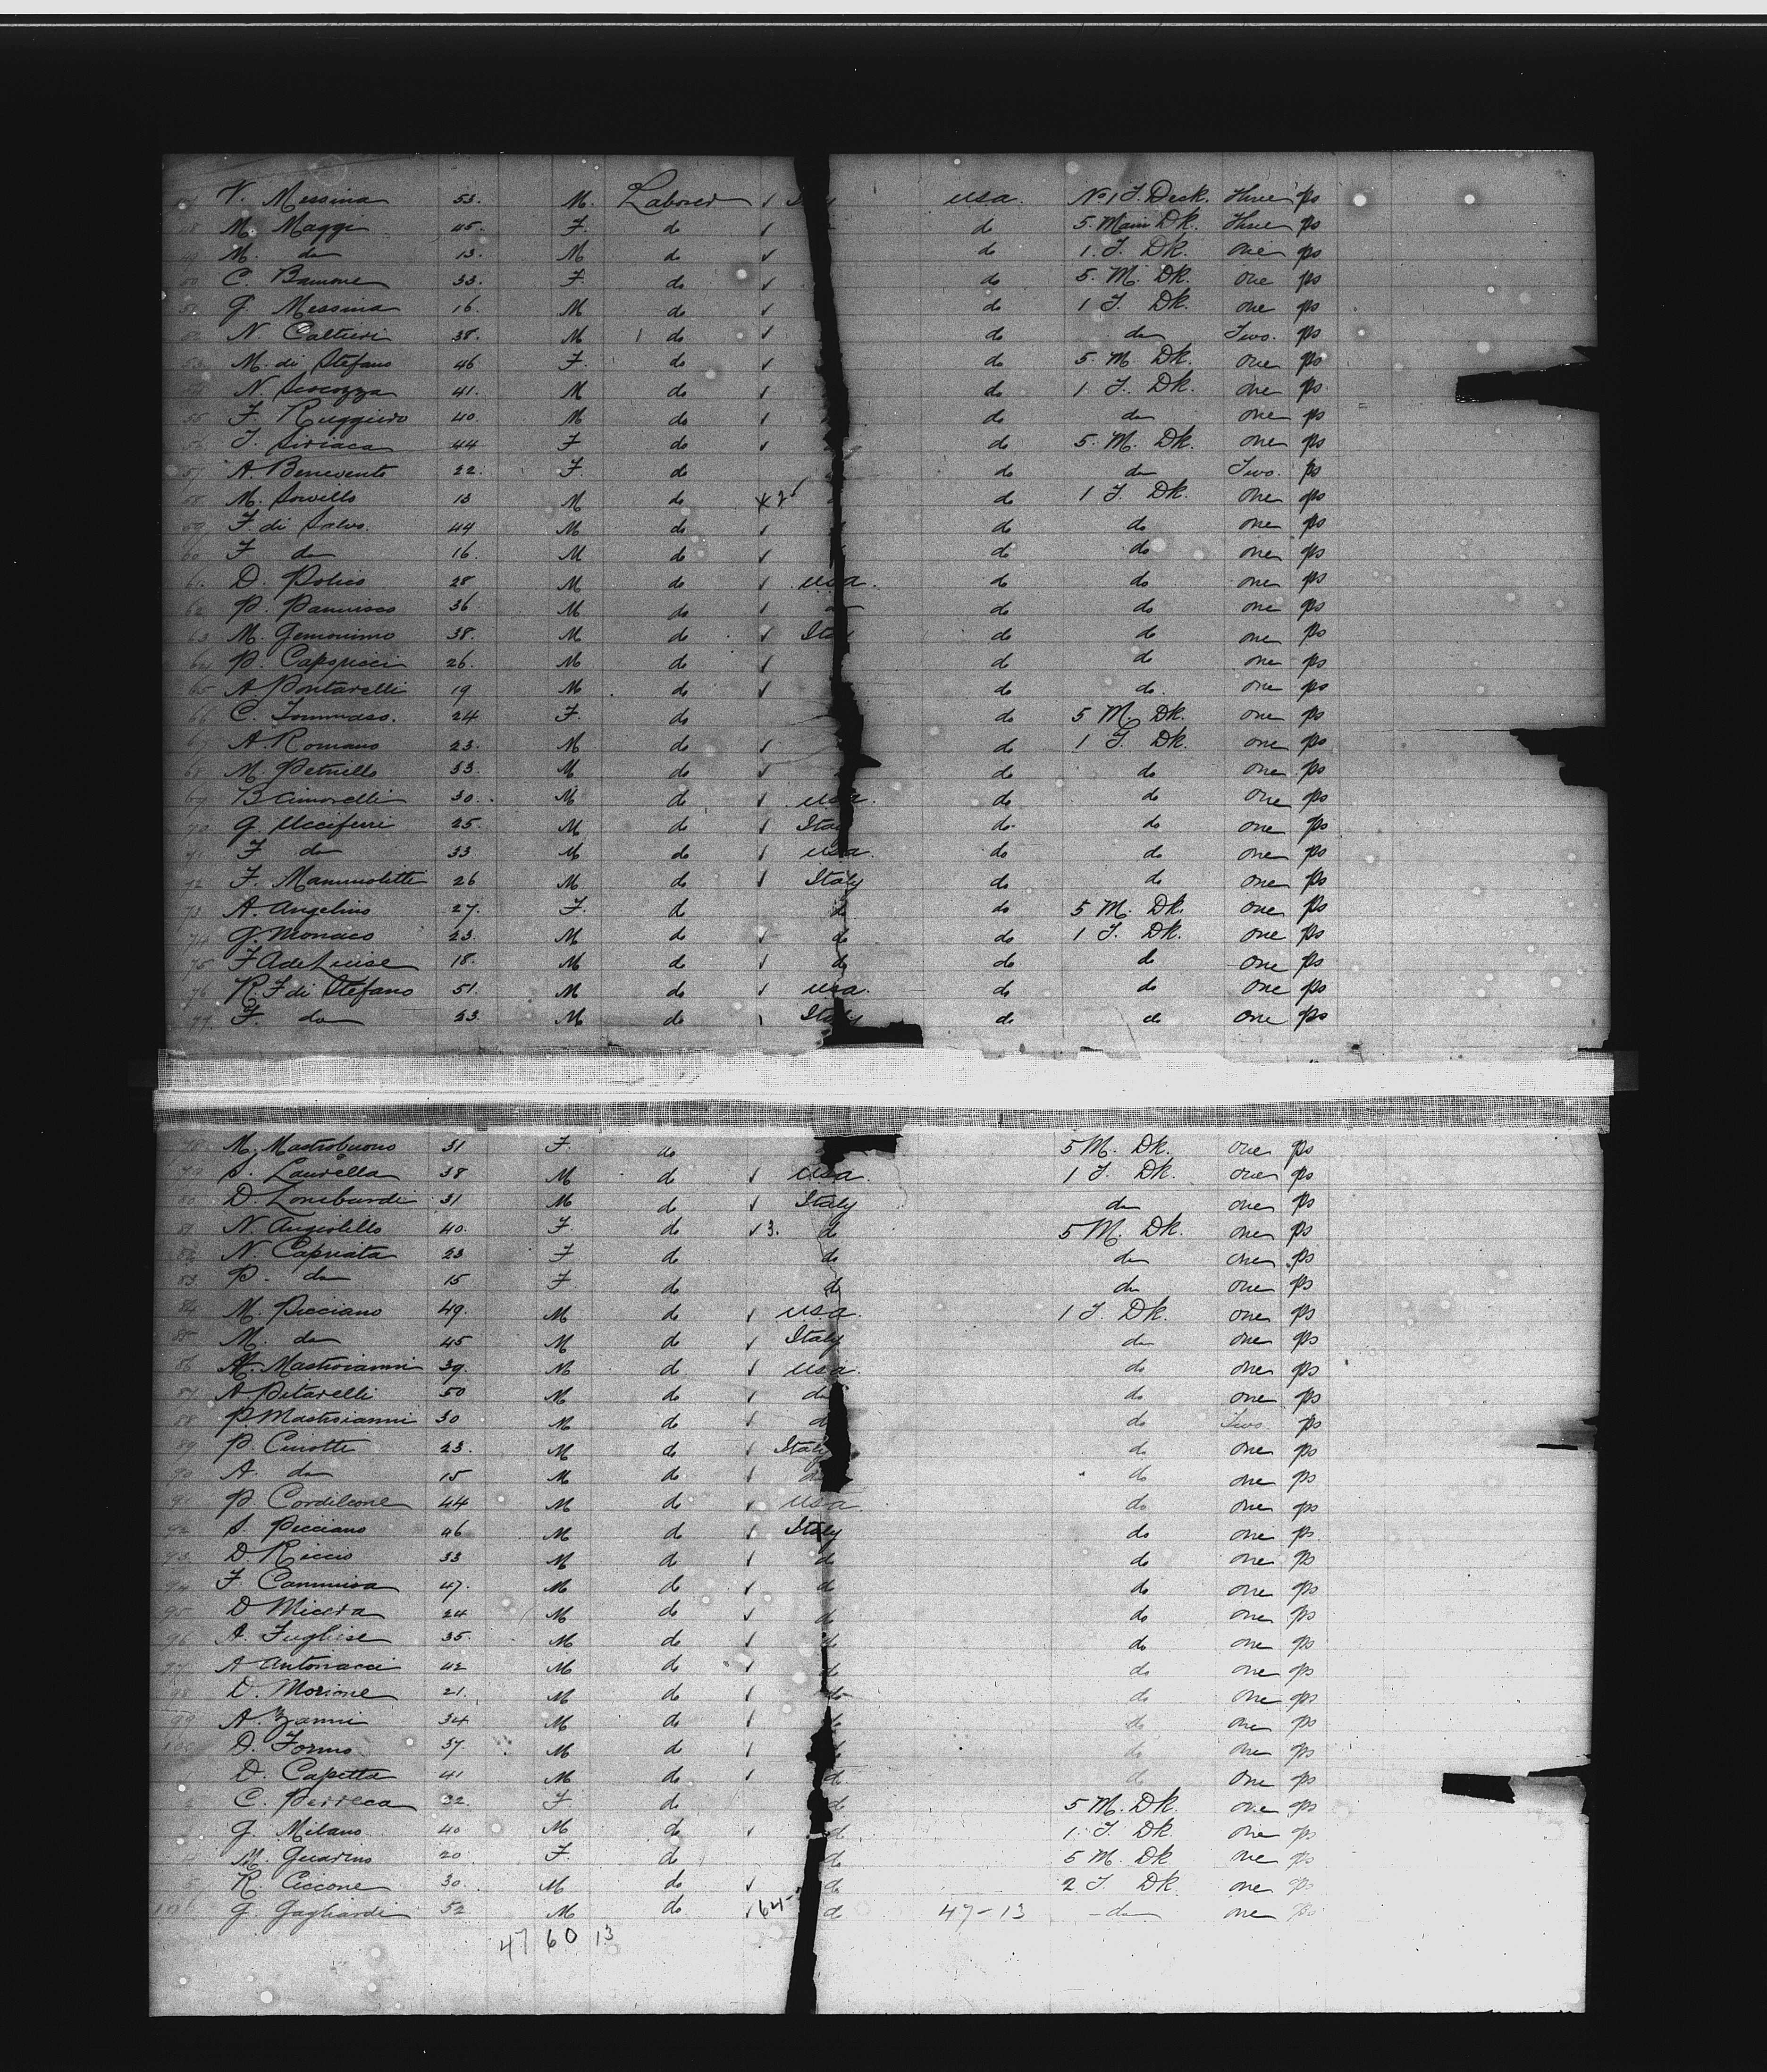 V. Messina 53. M. Laborer ✓ usa. No 1 T. Deck. Three ps
M. Maggi 45. F. do ✓ do 5. Main Dk. Three ps
M. do 13. M do ✓ do 1. T. Dk. one ps
C. Bamone 33. F. do ✓ do 5. M. Dk. one ps
G. Messina 16. M do ✓ do 1 T. Dk. one ps
N. Caltieri 38. M do ✓ do do Two. ps
53 M. di Stefano 46 F. do ✓ do 5. M. Dk. one ps
N. Scocozza 41. M do ✓ do 1 T. Dk. one ps
55 F. Ruggiero 40. M do ✓ do do one ps
56 T. Siriaca 44 F do ✓ do 5. M. Dk. one ps
57 A. Benevento 22. F. do do do Two. ps
58 M. 13 M do do 1 T. Dk. one ps
59 F. di Salvo. 44 M do ✓ do do one ps
60 F do 16. M do ✓ do do one ps
61 D. Polico 28 M do ✓ usa. do do one ps
62 P. Pannisco 36 M do ✓ do do one ps
63 M. Gemonimo 38. M do ✓ Italy do do one ps
64 P. Capsricci 26. M do ✓ do do one ps
65 A. Pontarelli 19 M do ✓ do do. one ps
66 C. Tommaso. 24 F. do do 5 M. Dk. one ps
67 A. Romano 23. M do ✓ do 1 T. Dk. one ps
68 M. Petriello 33. M do ✓ do do one ps
69 B Cimorelli 30. M do ✓ usa. do do one ps
70 G. Ucciferri 25. M do ✓ Italy do. do one ps
71 F do 33 M do ✓ usa. do do one ps
72 F. Mammolitti 26 M do ✓ Italy do do one ps
73 A. Angelino 27. F. do do do 5 M. Dk. one ps
74 G. Monaco 23. M do ✓ do do 1 T. Dk. one ps
75 F A de Luise 18. M do ✓ do do do one ps
76 R. F di Stefano 51. M do ✓ usa. do do one ps
77. F. do 23. M do Italy do do one ps
78 M. Mastrobuono 31 F. do 5 M. Dk. one ps
79 S. Laurella 38 M do ✓ usa. 1 T. Dk. one ps
80 D. Lombardi 31 M do ✓ Italy do one ps
81 N. Angiolillo 40. F. do ✓ 3. do 5 M. Dk. one ps
82 N. Capriata 23 F do do do one ps
83 P. do 15 F. do do do one ps
84 M. Picciano 49. M do ✓ usa. 1 T. Dk. one ps
85 M. do 45 M do ✓ Italy do one ps
86 M. Mastroianni 39. M do ✓ usa. do one ps
87 A. Pitarelli 50 M do ✓ do do one ps
88 P. Mastroianni 30 M do ✓ do do Two. ps
89 P. Ciriotti 23. M do ✓ Italy do one ps
90 A. do 15 M do ✓ do do one ps
91 P. Cordileone 44 M do ✓ usa do one ps
92 S. Picciano 46 M do ✓ Italy do one ps
93 D. Riccio 33 M do ✓ do do one ps
94 F. Cammisa 47. M do ✓ do do one ps
95 D Micera 24 M do ✓ do do one ps
96 A. Fugliese 35. M do ✓ do do one ps
97 A Antonacci 42 M do ✓ do do one ps
98 D. Morione 21. M do ✓ do do one ps
99 A. Zanni 34 M do ✓ do one ps
100 D. Forino 37. M do ✓ do one ps
D. Capetta 41 M do ✓ do do one ps
2 C. Perreca 32. F do do 5 M. Dk. one ps
G. Milano 40 M do ✓ do 1. T. Dk one ps
4 M. Guarino 20 F. do do 5 M. Dk one ps
5 R. Ciccone 30. M do ✓ do 2 T. Dk. one ps
106 G. Gagliardi 52 M do ✓ 64- do 47-13 do one ps
47 60 13